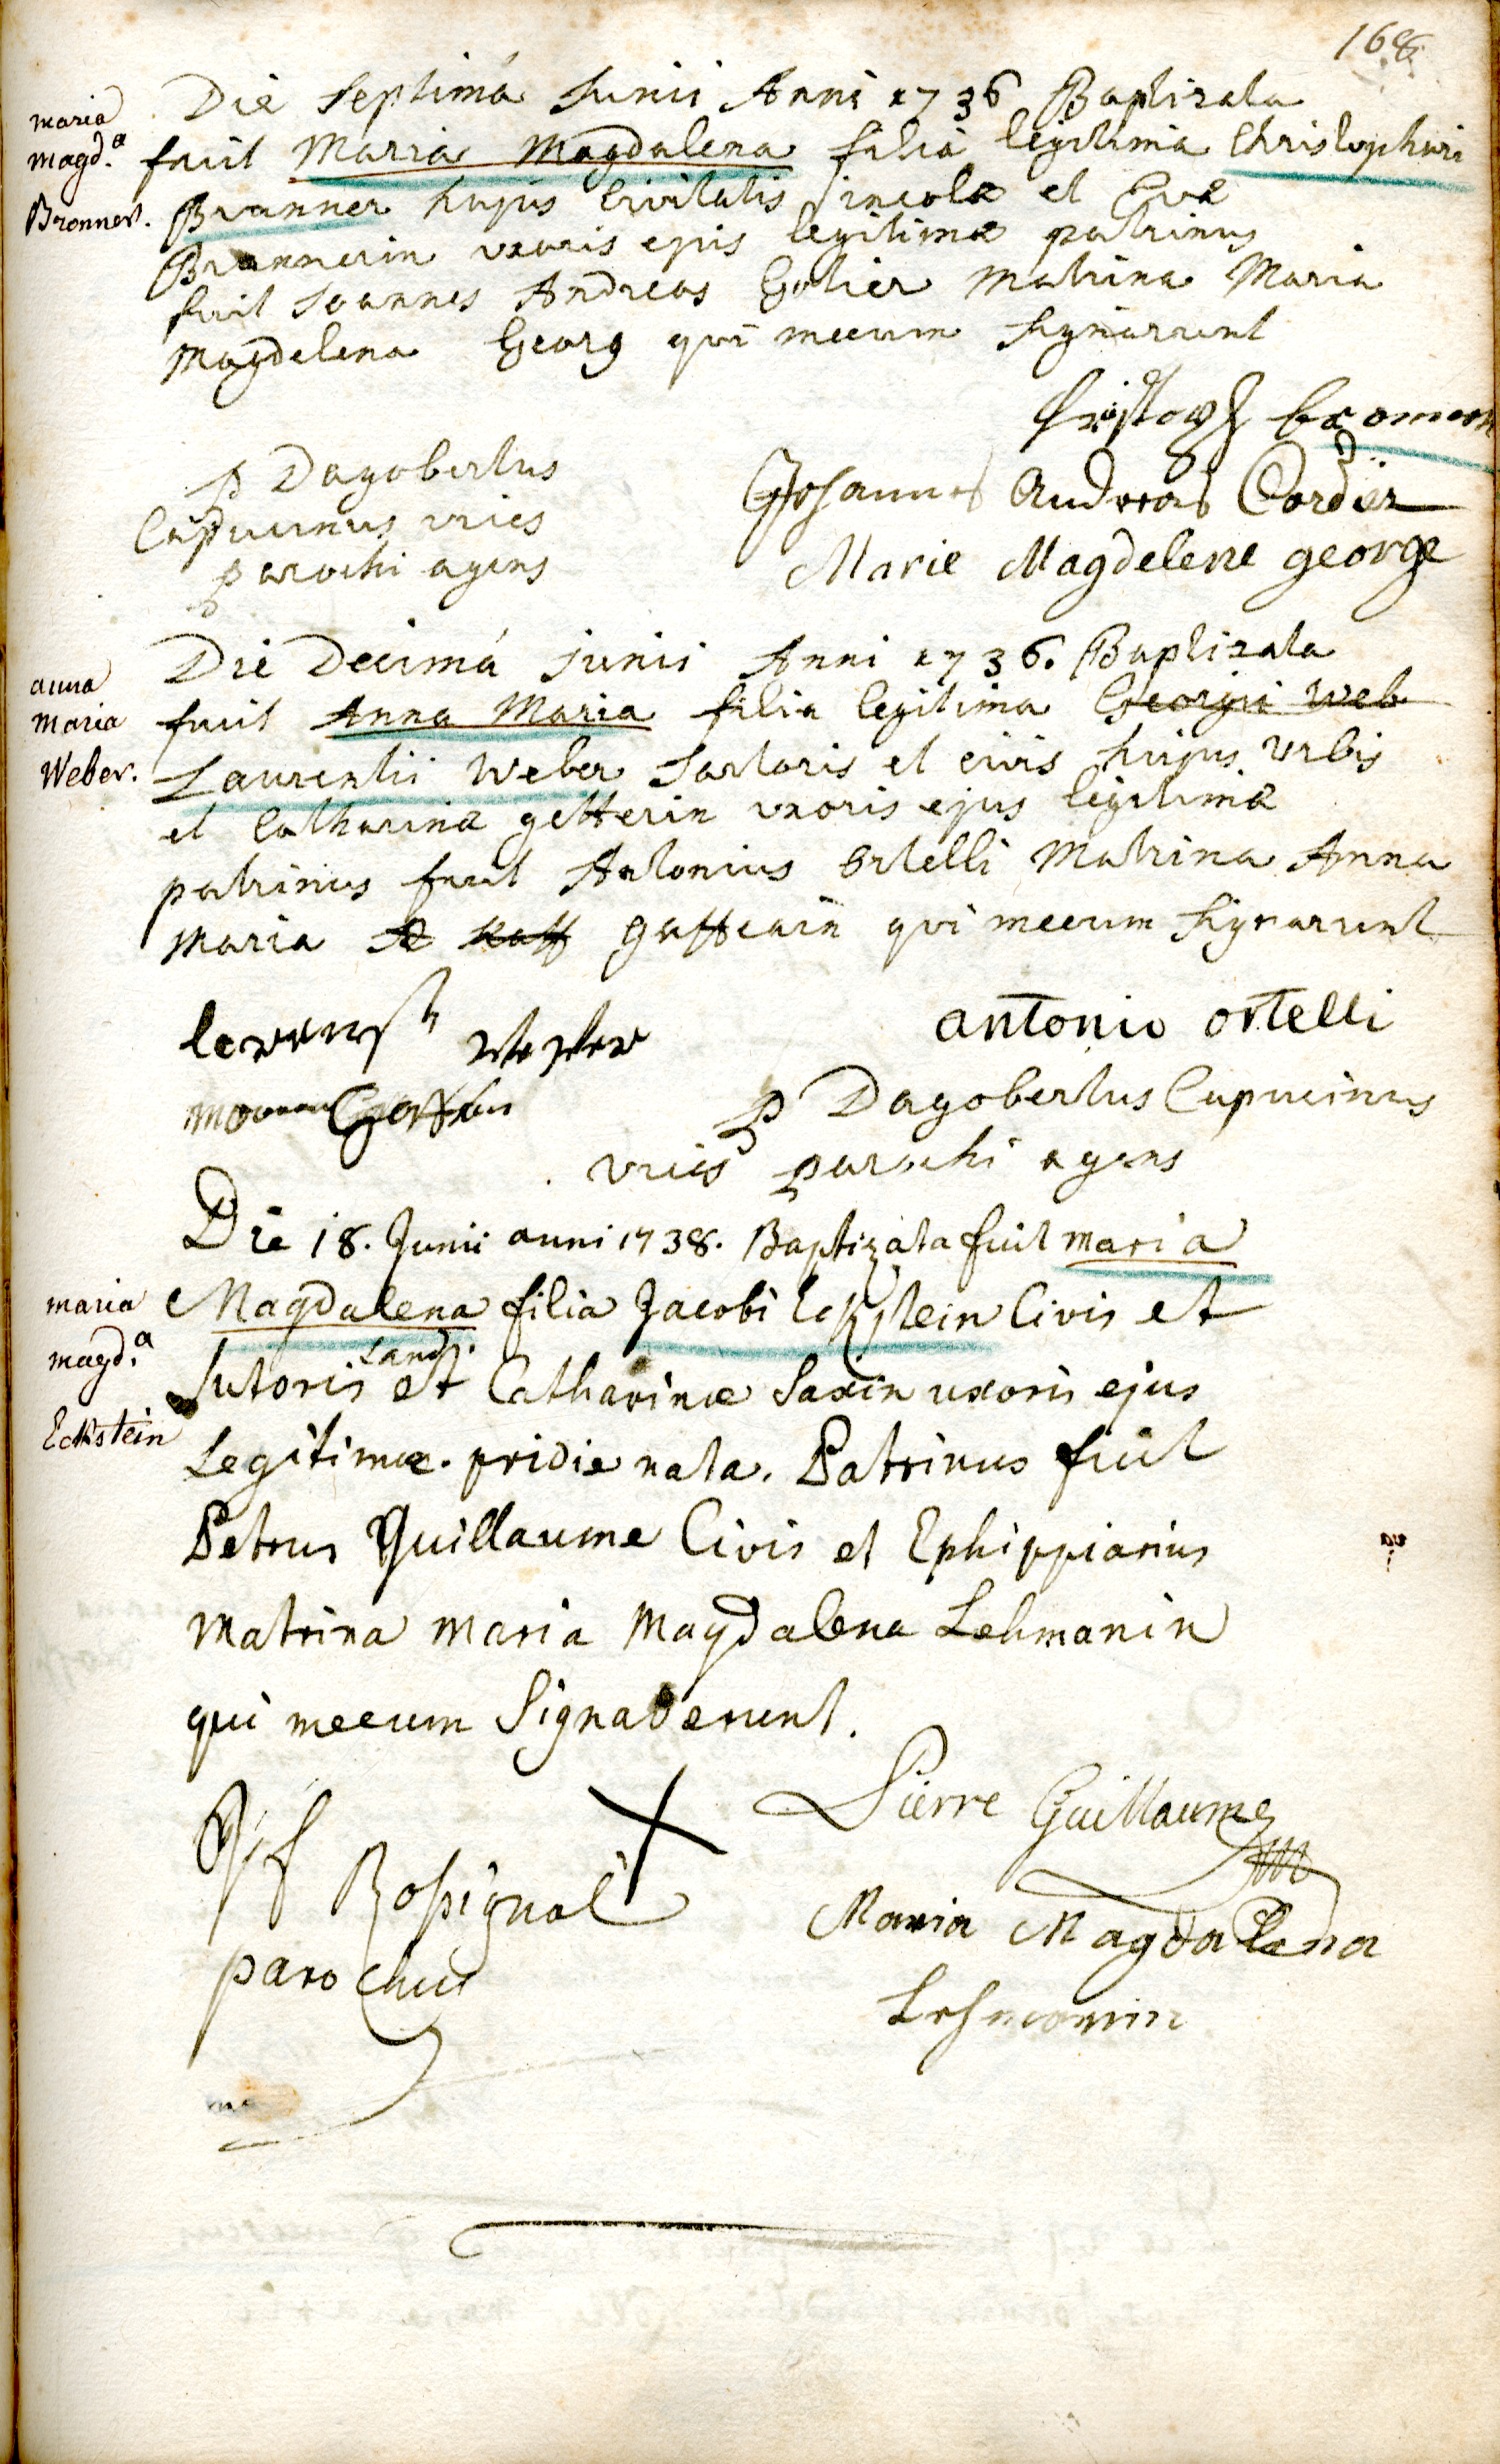 168
maria
magd.a
Bronner.
Die Septimá Junii Anni 1736 Baptizata
fuit Maria Magdalena filia legitima Christophori
Brunner hujus Civitatis incolæ et Evæ
Brunnerin uxoris ejus legitimæ patrinus
fuit Joannes Andreas Gotier Matrina Maria
Magdelena Georg qui mecum signarunt
P Dagobertus
Capucinus vices
parochi agens
Johannes Andreas Cordier
Marie Magdelene george
anna
maria
Weber.
Die Decimá Junii Anni 1736. Baptizata
fuit Anna Maria filia legitima Georgii Web
Laurentii Weber Sartoris et civis hujus Urbis
et Catharinæ getterin uxoris ejus legitimæ
patrinus fuit Antonius Ortelli Matrina Anna
Maria qui mecum signarunt
antonio ortelli
P Dagobertus Capucinus
vices parochi agens
maria
magd.a
Eckstein
Die 18. Junii anni 1738. Baptizata fuit maria
Magdalena filia Jacobi Eckstein Civis et
Sutoris et Catharinæ Saxin uxoris ejus
Legitimæ. pridie nata. Patrinus fuit
Petrus Guillaume Civis et Ephippiarius
Matrina maria Magdalena Lehmanin
qui mecum Signaverunt.
Rossignol
parochus
Pierre Guillaume
Maria Magdalena
Lehmannin